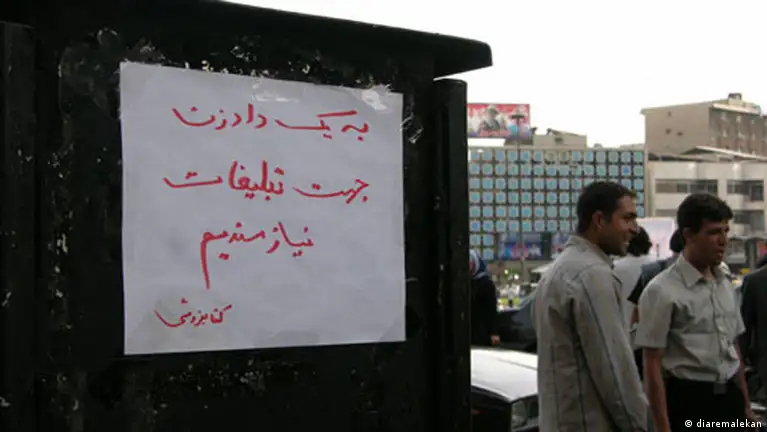 به یک دادزن
جهت تبلیغات
نیازمندیم
کتابفروشی
(c) diaremalekan